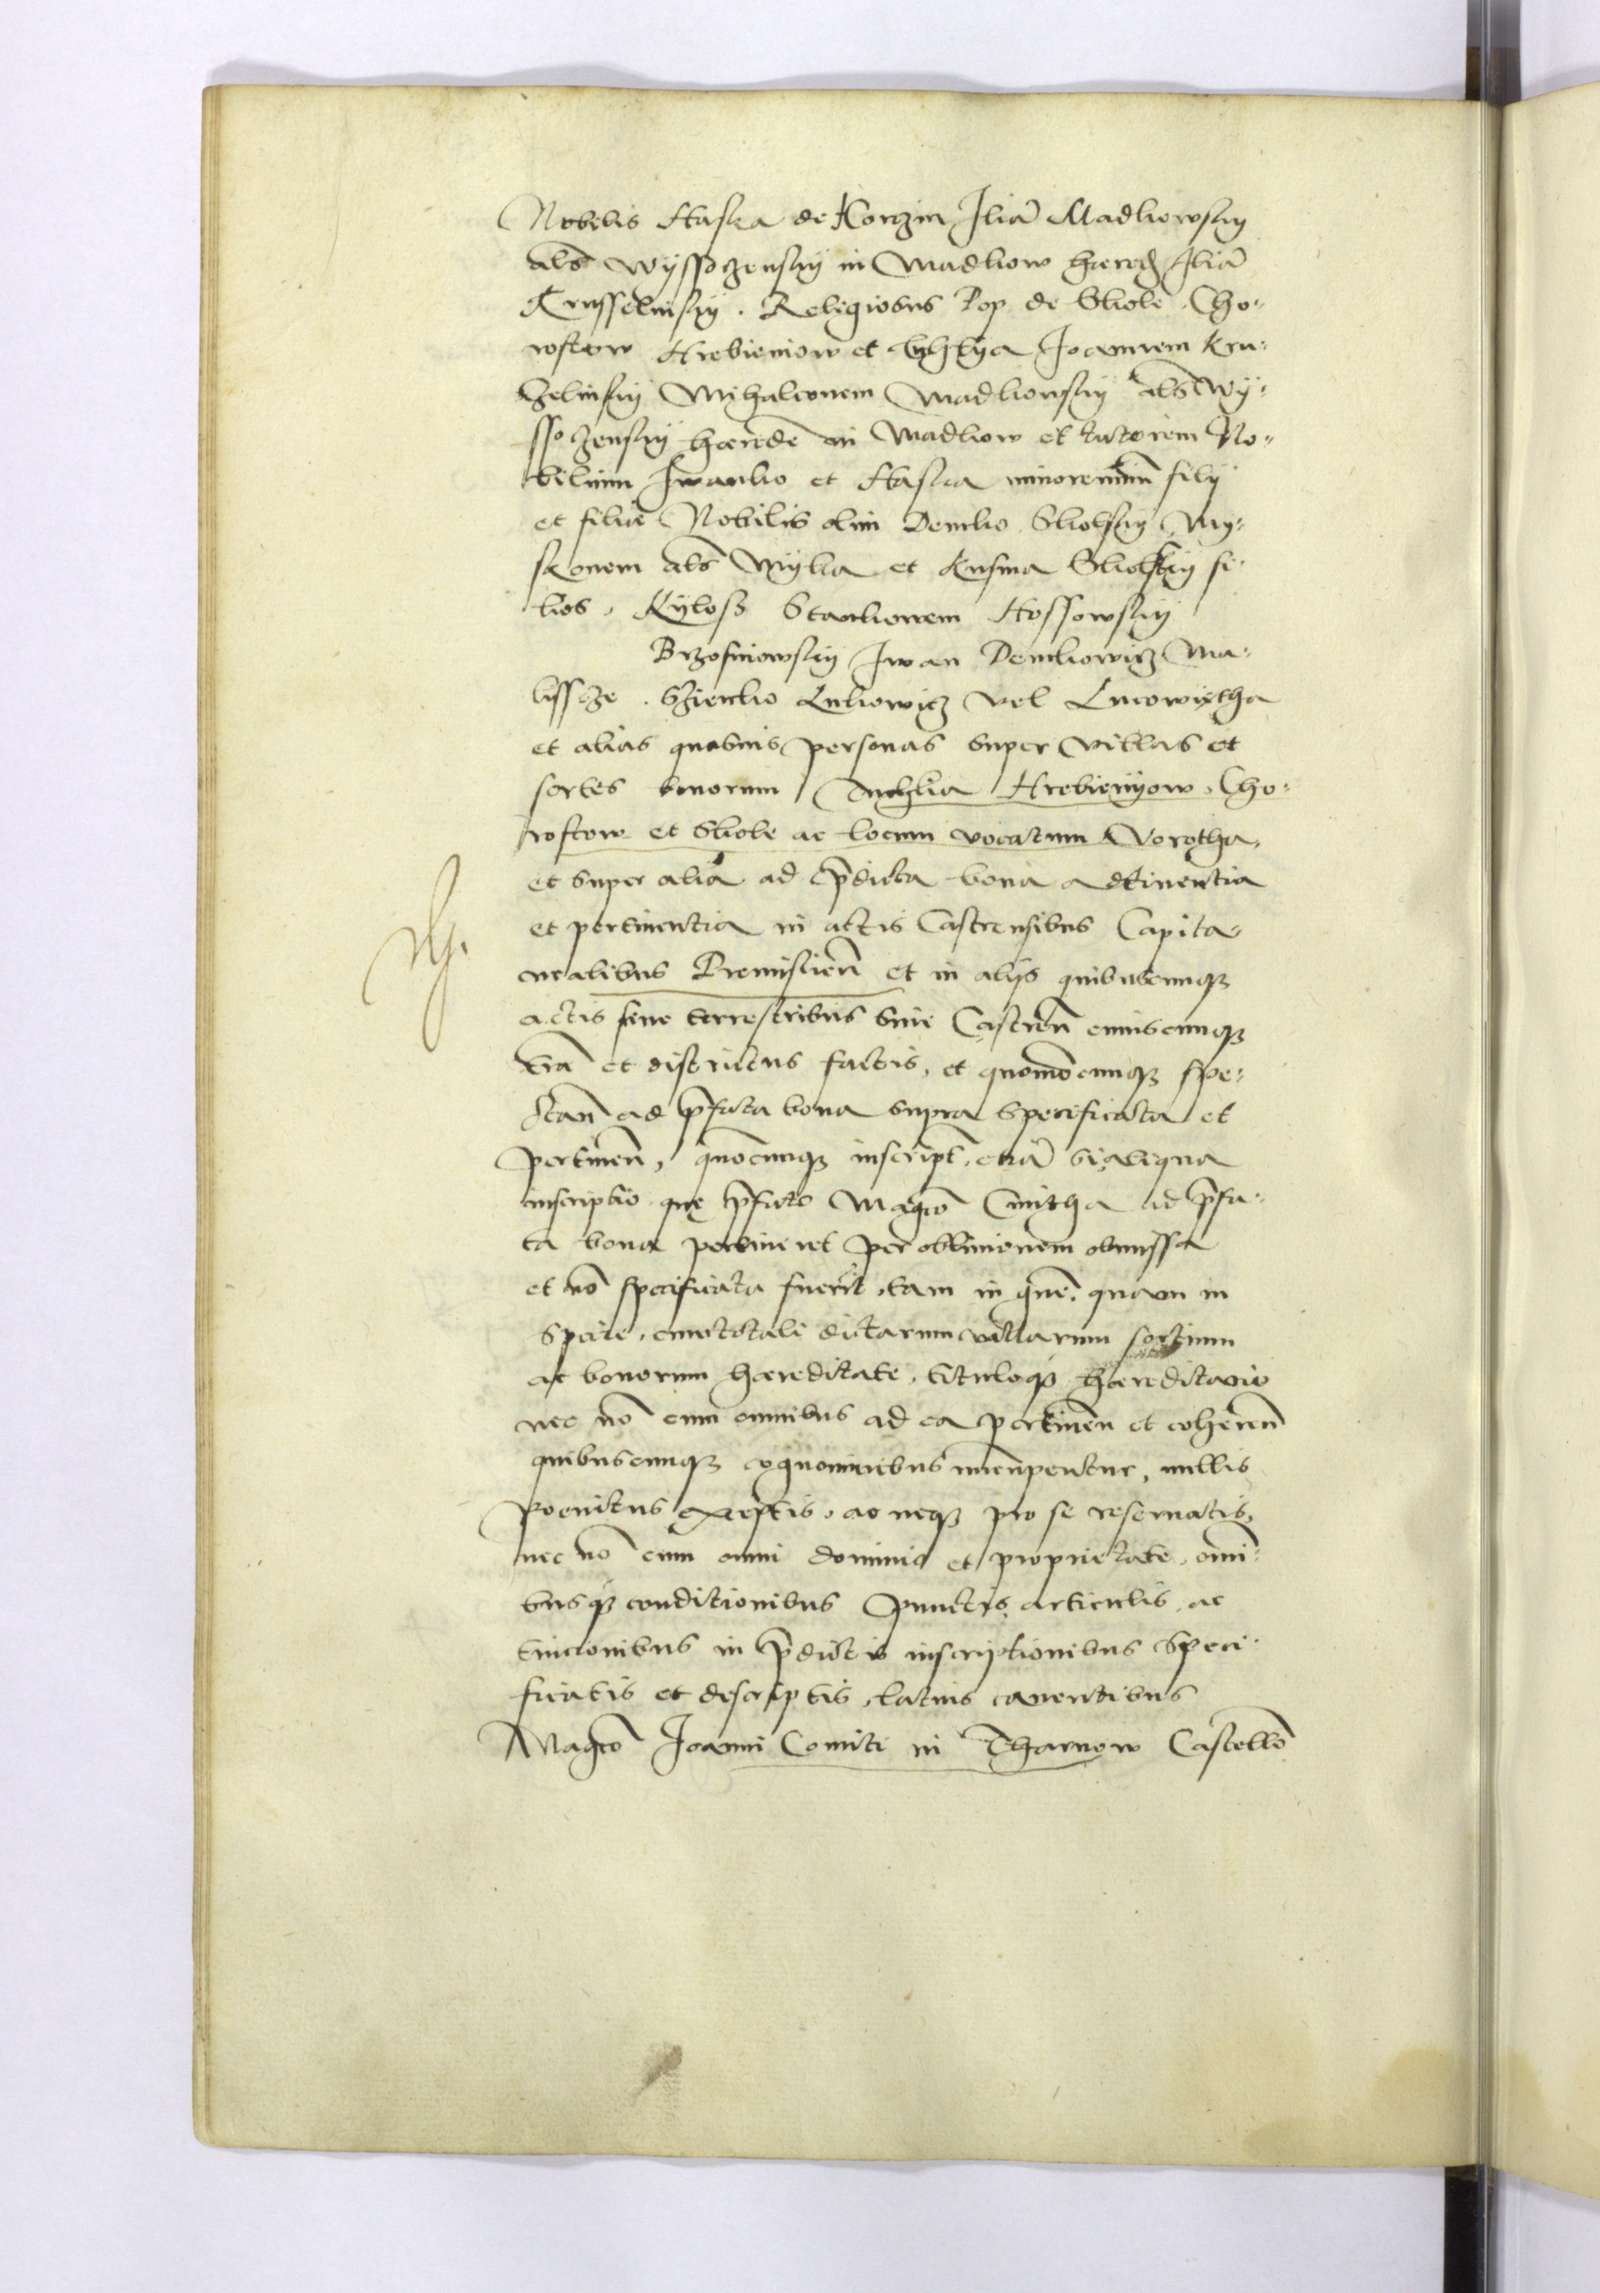 Nobilis Haska de Korczin Iliā Madliowskij
als Wijssoczenskij in Madliow hæred Iliā
Krusselniskij. Religiosus Pop de Sliole. Cho-
rostow Hrebieniow et Joannem Kru-
Zelinskij Mihalionem Madliowskij als Wij-
ssoczenskij hærede in Madliow et tutorem No-
bilium Iwanko et Haska minorennium filij
et filiæ Nobilis olim Demko Sliolskij Mij-
skonem als Mijlia et Kusma Sliolskij fi-
lios. Kijloss Stanliorem Hossowskij
Brzosniowskij Iwan Demkowicz Ma-
lissoze. Szienko Lukowicz vel Lucowicha
et alias quasuis personas super villas et
sortes bonorum Hrebienijow. Cho-
rostow et Sliole ac locum vocatum Worotha.
et super alia ad pdicta bona adtinentia
et pertinentia in actis Castrensibus Capita-
nealibus Premislien et in alijs quibuscumq
actis siue terrestribus siue Castren cuiuscumq
trā et districtus factis, et quomōcumq spe-
ctan ad pfata bona supra specificata et
pertinen, quōcumq inscript. etiā si aliqua
inscriptio quę pfato Magco Cmitha ad pfa-
ta bona pertineret per obliuionem obmissa
et nō specificata fuerit, tam in gne. quam in
specie, cum totali dictarum villarum sortium
ac bonorum hæreditate, tituloq hæreditario
nec nō cum omnibus ad ea pertinen et coheren
quibuscumq cognominibus nuncupentur, nullis
poenitus exceptis, ac neq pro se reseruatis,
nec nō cum omni dominio et proprietate, omi-
busq conditionibus punctis articulis, ac
in pdictis inscriptionibus speci-
ficatis et descriptis, latius cauentibus
Magco Joanni Comiti in Tharnow Castellō